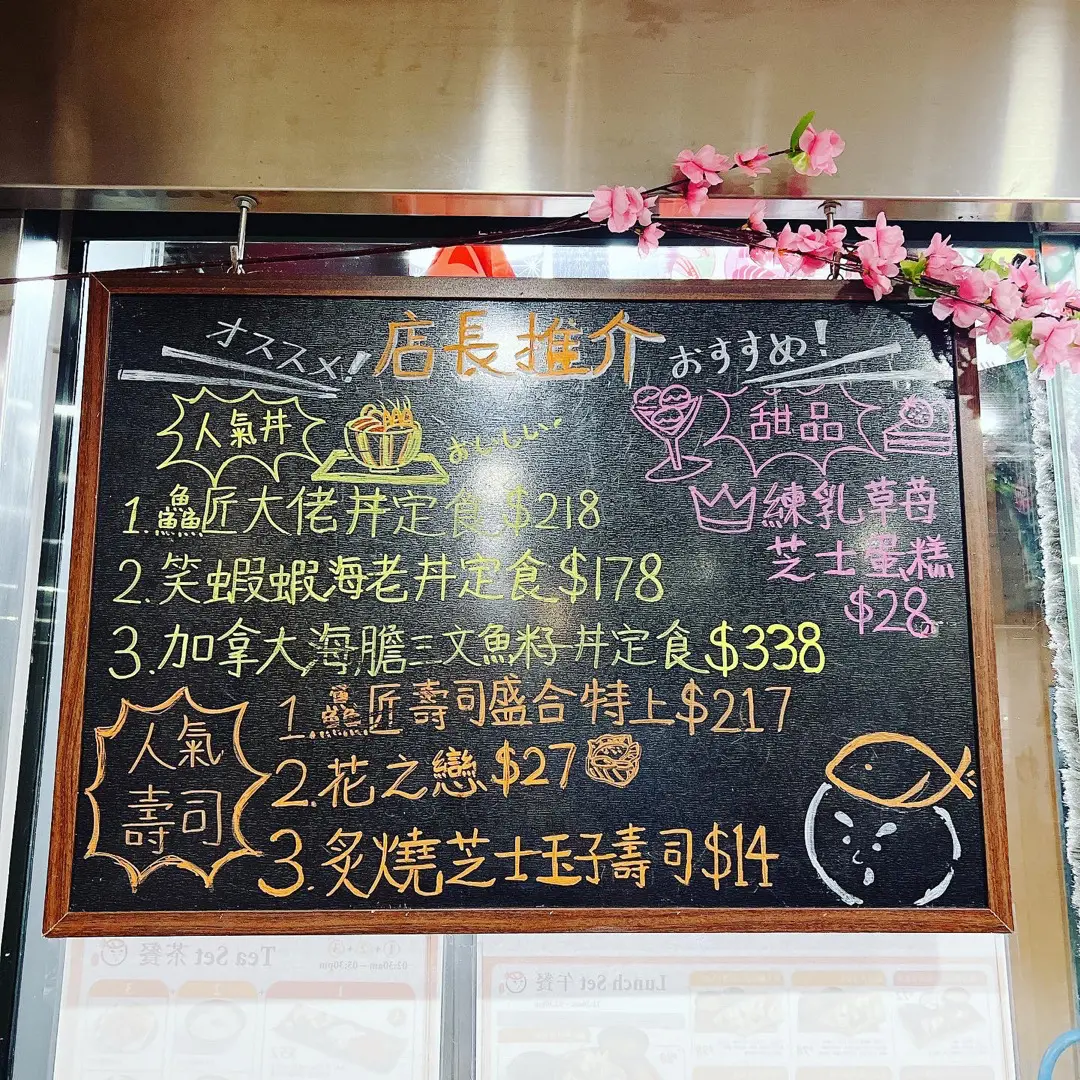 オススメ! 店長推介 おすすめ!
人氣丼
おいしい
1.鱻匠大佬丼定食$218
2.笑蝦蝦海老丼定食$178
3.加拿大海膽三文魚籽丼定食$338
甜品
練乳草苺
芝士蛋糕
$28
人氣
壽司
1.鱻匠壽司盛合特上$217
2.花之戀$27
3.炙燒芝士玉子壽司$14
Tea Set 茶餐
Lunch Set 午餐